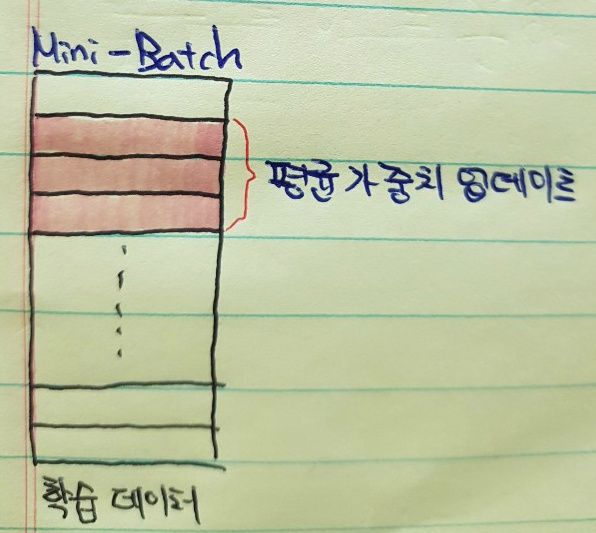 Mini-Batch
평균 가중치 업데이트
학습 데이터